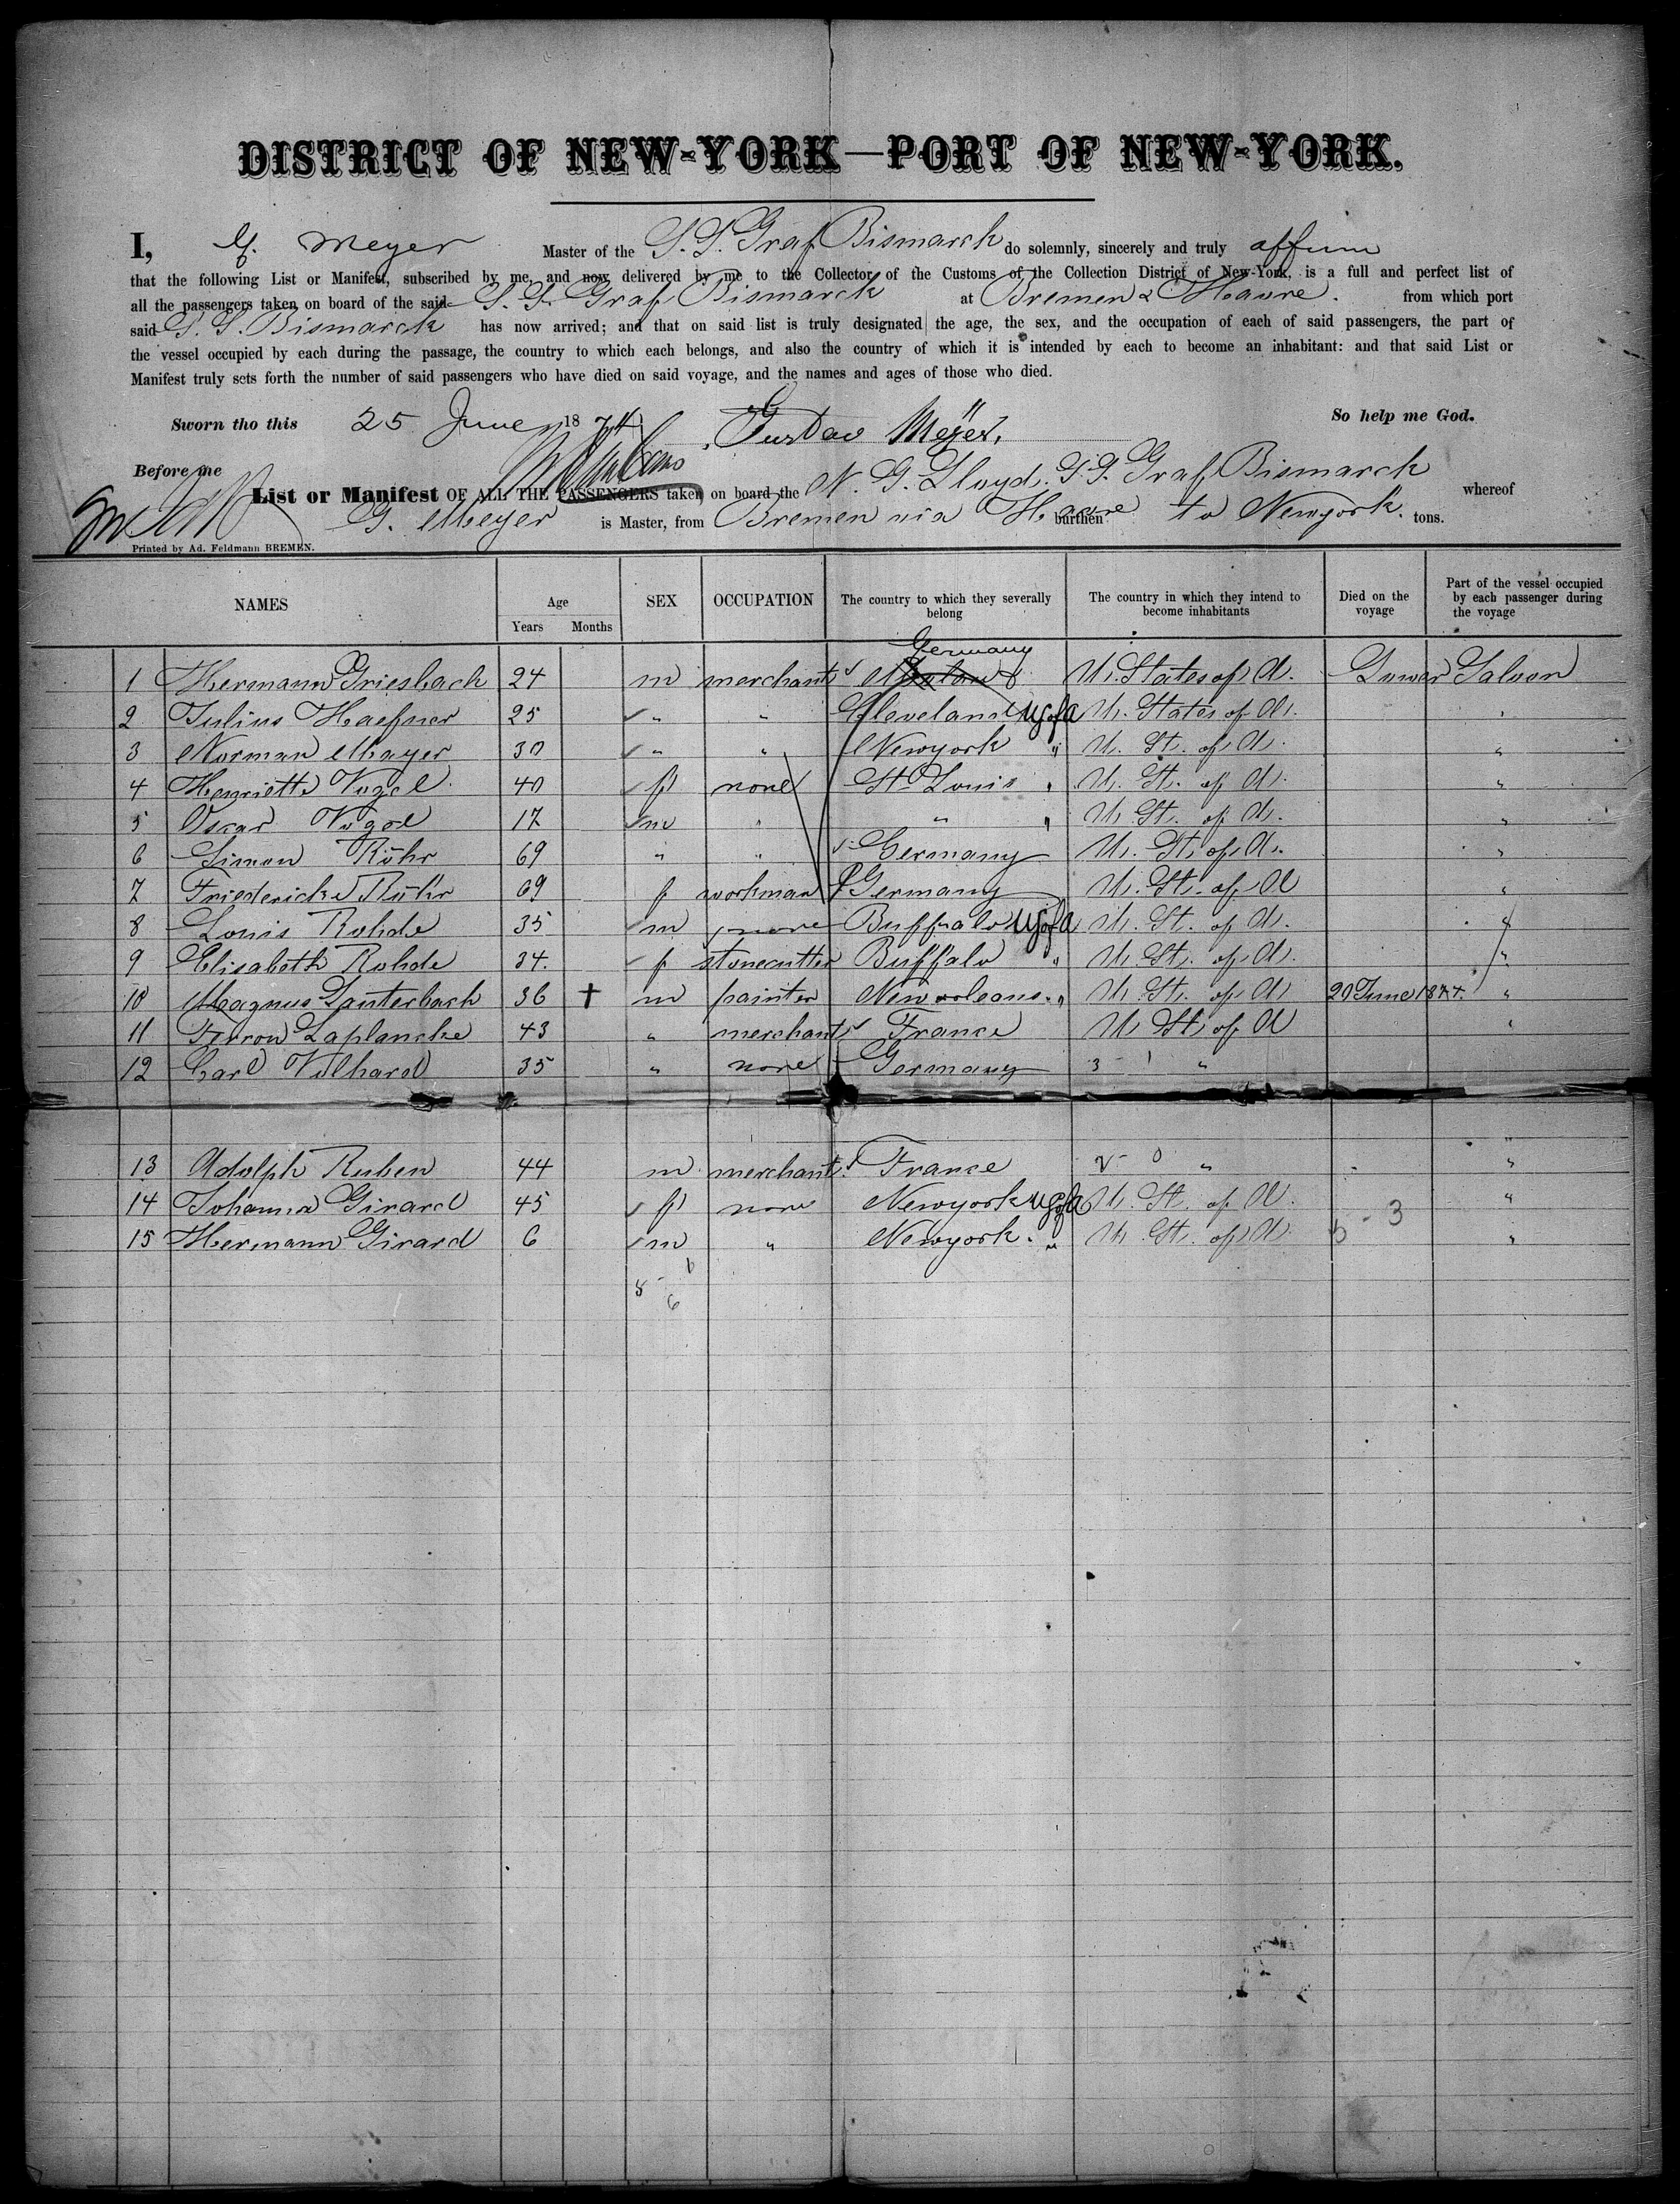 DISTRICT OF NEW-YORK—PORT OF NEW-YORK.
I, G. Meyer Master of the S. S. Graf Bismarck do solemnly, sincerely and truly affirm
that the following List or Manifest, subscribed by me, and now delivered by me to the Collector of the Customs of the Collection District of New-York, is a full and perfect list of
all the passengers taken on board of the said S. S. Graf Bismarck at Bremen & Havre. from which port
said S. S. Bismarck has now arrived; and that on said list is truly designated the age, the sex, and the occupation of each of said passengers, the part of
the vessel occupied by each during the passage, the country to which each belongs, and also the country of which it is intended by each to become an inhabitant: and that said List or
Manifest truly sets forth the number of said passengers who have died on said voyage, and the names and ages of those who died.
Sworn tho this 25 June 1874 Gustav Meyer. So help me God.
Before me
List or Manifest OF ALL THE PASSENGERS taken on board the N. G. Lloyd. S. S. Graf Bismarck whereof
G. Meyer is Master, from Bremen via Havre to Newyork. burthen tons.
Printed by Ad. Feldmann BREMEN.
NAMES Age Years Months SEX OCCUPATION The country to which they severally belong The country in which they intend to become inhabitants Died on the voyage Part of the vessel occupied by each passenger during the voyage
Germany
1 Hermann Griesbach 24 m merchant U. States of A. Lower Saloon
2 Julius Haefner 25 " " Cleveland USofA U. States of A. "
3 Norman Mayer 30 " " Newyork " U. St. of A. "
4 Henriette Vogel 40 f none St. Louis " U. St. of A. "
5 Oscar Vogel 17 m " " " U. St. of A. "
6 Simon Röhr 69 " " Germany U. St. of A. "
7 Friedericke Röhr 69 f workman Germany U. St. of A "
8 Louis Rohde 35 m none Buffalo USofA U. St. of A. "
9 Elisabeth Rohde 34. f stonecutter Buffalo " U. St. of A. "
10 Magnus Lauterbach 36 † m painter New orleans. " U. St. of A 20 June 1874. "
11 Ferron Laplanche 43 " merchant France U St of A "
12 Carl Volhard 35 " none Germany 3 - 1 "
13 Adolph Ruben 44 m merchant France " "
14 Johanna Girard 45 f none Newyork USofA U. St. of A. "
15 Hermann Girard 6 m " Newyork. " U. St. of A. - 3 "
8 -
6